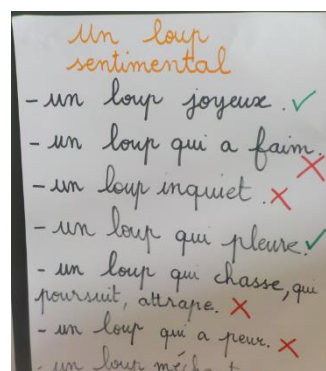 un loup
sentimental
- un loup joyeux. ✓
- un loup qui a faim. ✗
- un loup inquiet. ✗
- un loup qui pleure. ✓
- un loup qui chasse, qui
poursuit, attrape. ✗
- un loup qui a peur. ✗
- un loup